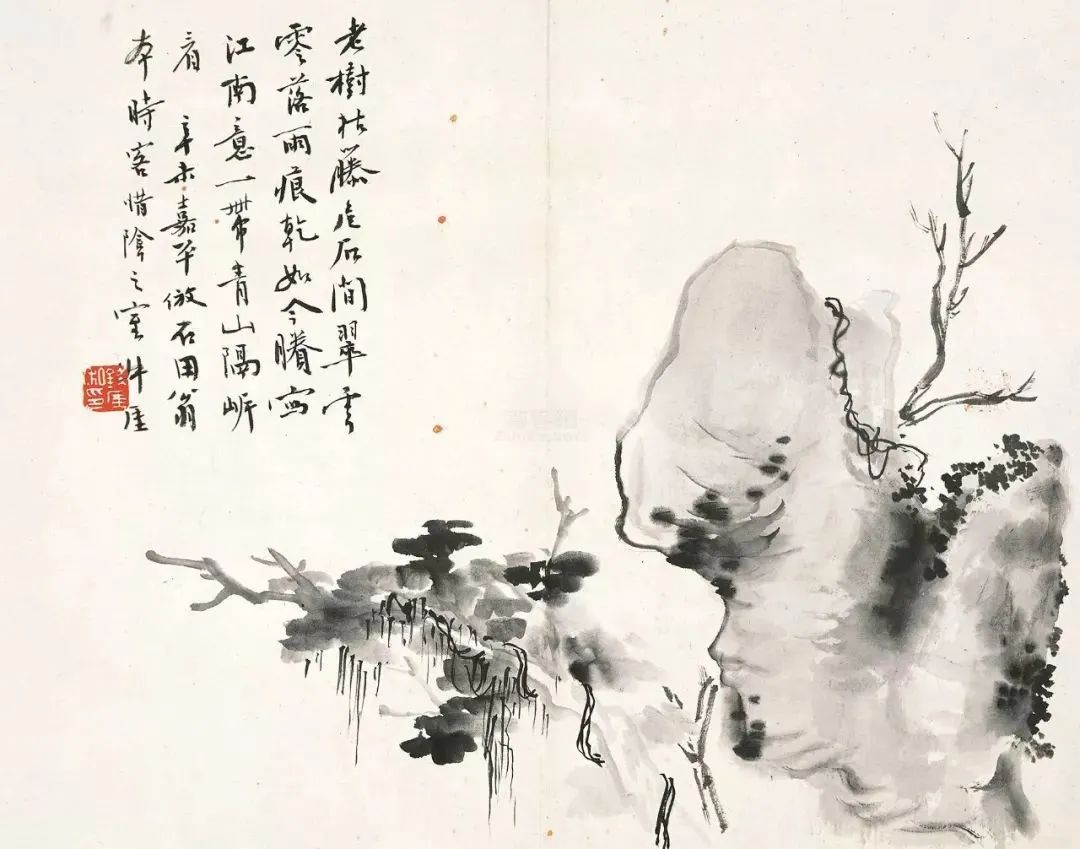 老樹枯藤危石間翠雲
零落雨痕乾如今賸寫
江南意一帶青山隔岸
看 辛未嘉平倣石田翁
本時客惜陰之室